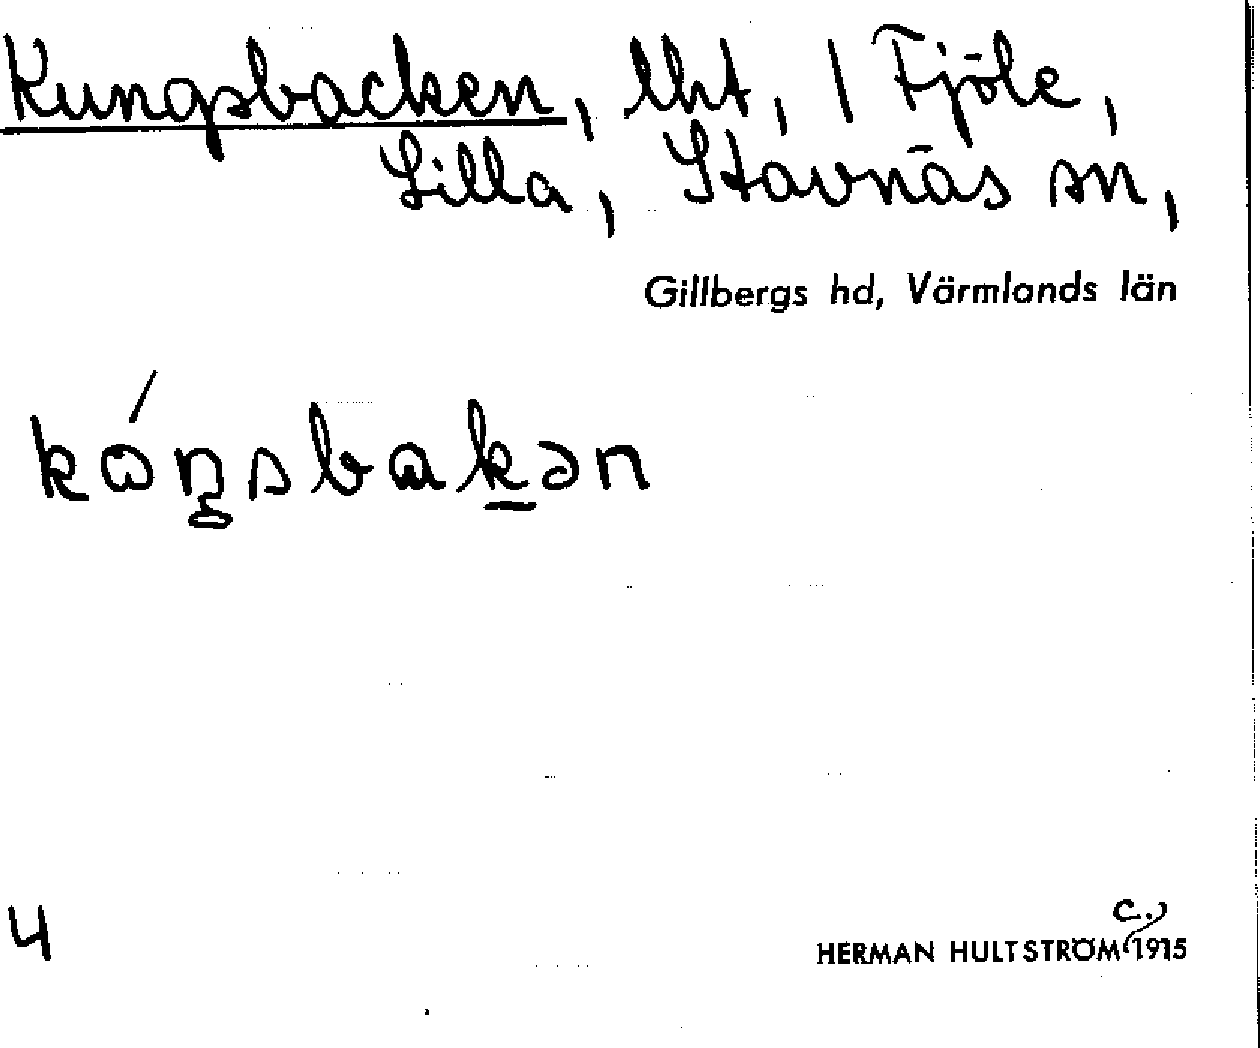 Kungsbacken, lht, 1 Fjöle,
Lilla, Stavnäs sn,
Gillbergs hd, Värmlands län
kóŋsbakən
4
c.
HERMAN HULTSTRÖM 1915